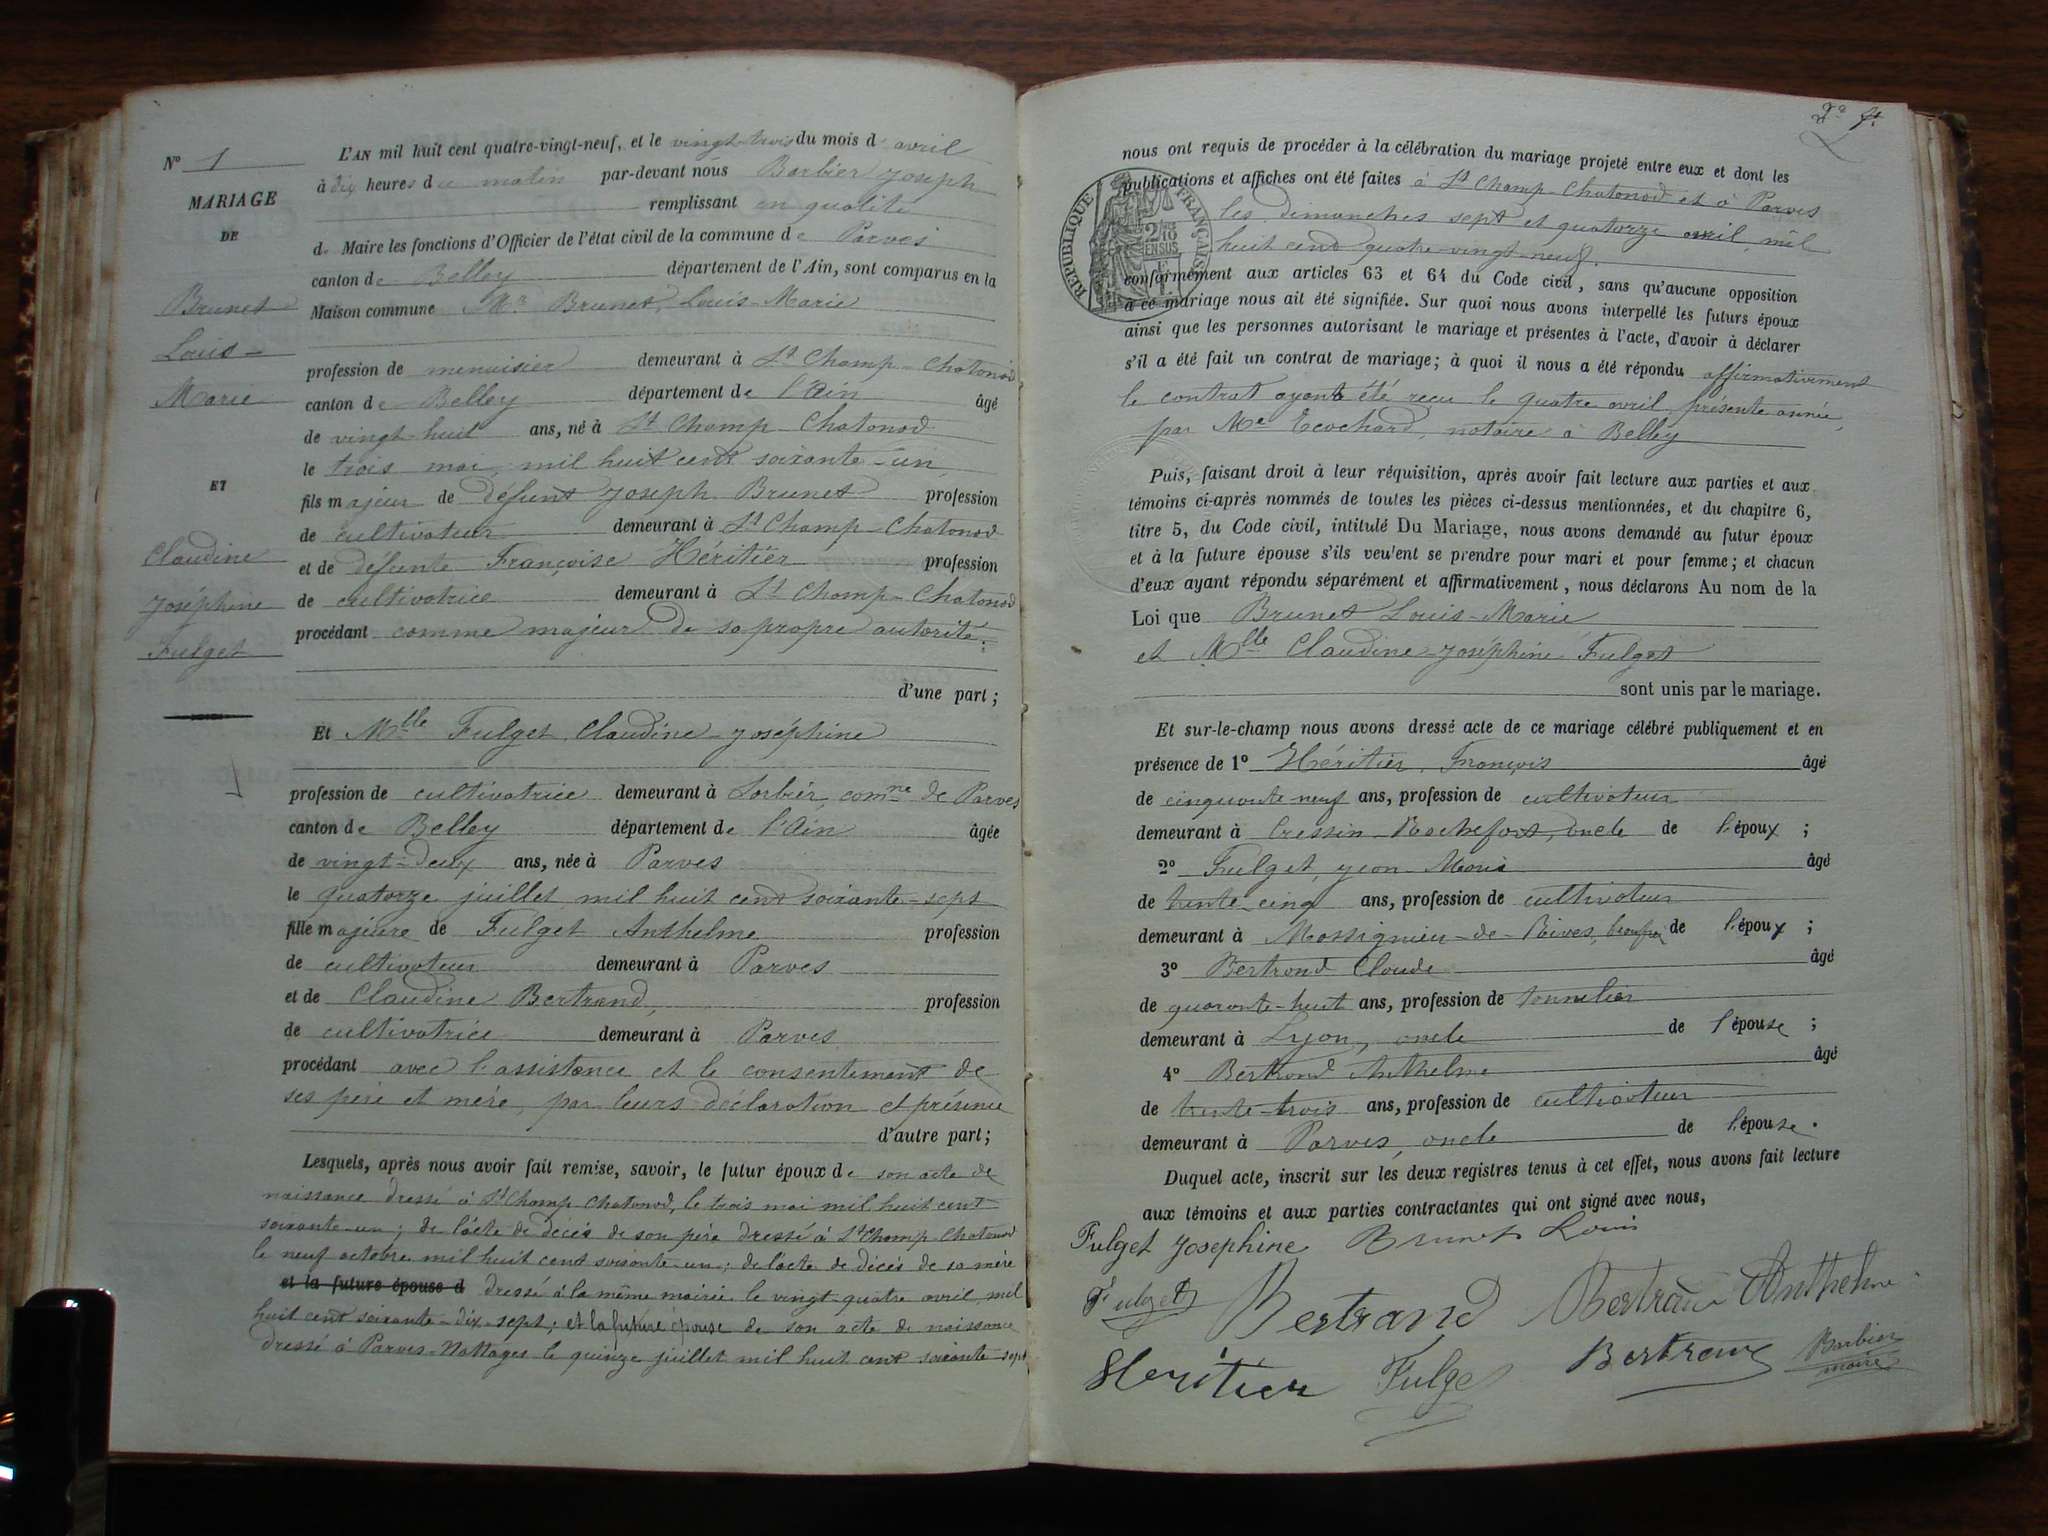 N° 1
MARIAGE
DE
Brunet
Louis-
Marie
ET
Claudine
Joséphine
Fulget
L'AN mil huit cent quatre-vingt-neuf, et le vingt-trois du mois d'avril
à dix heures du matin par-devant nous Barbier Joseph
remplissant en qualité
de Maire les fonctions d'Officier de l'état civil de la commune de Parves
canton de Belley département de l'Ain, sont comparus en la
Maison commune Mr Brunet, Louis-Marie
profession de menuisier demeurant à St Champ-Chatonod
canton de Belley département de l'Ain âgé
de vingt-huit ans, né à St Champ-Chatonod
le trois mai mil huit cent soixante-un
fils majeur de défunt Joseph Brunet profession
de cultivateur demeurant à St Champ-Chatonod
et de défunte Françoise Héritier profession
de cultivatrice demeurant à St Champ-Chatonod
procédant comme majeur de sa propre autorité.
d'une part;
Et Mlle Fulget Claudine-Joséphine
profession de cultivatrice demeurant à Sorbier, comne de Parves
canton de Belley département de l'Ain âgée
de vingt-deux ans, née à Parves
le quatorze juillet mil huit cent soixante-sept
fille majeure de Fulget Anthelme profession
de cultivateur demeurant à Parves
et de Claudine Bertrand, profession
de cultivatrice demeurant à Parves
procédant avec l'assistance et le consentement de
ses père et mère, par leurs déclaration et présence
d'autre part;
Lesquels, après nous avoir fait remise, savoir, le futur époux de son acte de
naissance dressé à St Champ-Chatonod, le trois mai mil huit cent
soixante-un; de l'acte de décès de son père dressé à St Champ-Chatonod
le neuf octobre mil huit cent soixante-un; de l'acte de décès de sa mère
et la future épouse d dressé à la même mairie le vingt-quatre avril mil
huit cent soixante-dix-sept; et la future épouse de son acte de naissance
dressé à Parves-Nattages le quinze juillet mil huit cent soixante-sept
nous ont requis de procéder à la célébration du mariage projeté entre eux et dont les
publications et affiches ont été faites à St Champ-Chatonod et à Parves
les dimanches sept et quatorze avril, mil
huit cent quatre-vingt-neuf.
RÉPUBLIQUE FRANÇAISE
2/10 EN SUS
conformément aux articles 63 et 64 du Code civil, sans qu'aucune opposition
à ce mariage nous ait été signifiée. Sur quoi nous avons interpellé les futurs époux
ainsi que les personnes autorisant le mariage et présentes à l'acte, d'avoir à déclarer
s'il a été fait un contrat de mariage; à quoi il nous a été répondu affirmativement
le contrat ayant été reçu le quatre avril, présente année,
par Me Ecochard, notaire à Belley
Puis, faisant droit à leur réquisition, après avoir fait lecture aux parties et aux
témoins ci-après nommés de toutes les pièces ci-dessus mentionnées, et du chapitre 6,
titre 5, du Code civil, intitulé Du Mariage, nous avons demandé au futur époux
et à la future épouse s'ils veulent se prendre pour mari et pour femme; et chacun
d'eux ayant répondu séparément et affirmativement, nous déclarons Au nom de la
Loi que Brunet Louis-Marie
et Mlle Claudine-Joséphine Fulget
sont unis par le mariage.
Et sur-le-champ nous avons dressé acte de ce mariage célébré publiquement et en
présence de 1° Héritier, François âgé
de cinquante neuf ans, profession de cultivateur
demeurant à Cressin-Rochefort, oncle de l'époux;
2° Fulget, Jean-Marie âgé
de trente-cinq ans, profession de cultivateur
demeurant à Massignieu-de-Rives, beaufrère de l'époux;
3° Bertrand Claude âgé
de quarante-huit ans, profession de tonnelier
demeurant à Lyon, oncle de l'épouse;
4° Bertrand Anthelme âgé
de trente-trois ans, profession de cultivateur
demeurant à Parves, oncle de l'épouse.
Duquel acte, inscrit sur les deux registres tenus à cet effet, nous avons fait lecture
aux témoins et aux parties contractantes qui ont signé avec nous,
Fulget Josephine Brunet Louis
Fulget Bertrand Bertrand Anthelme
Heritier Fulget Bertrand Barbier
maire